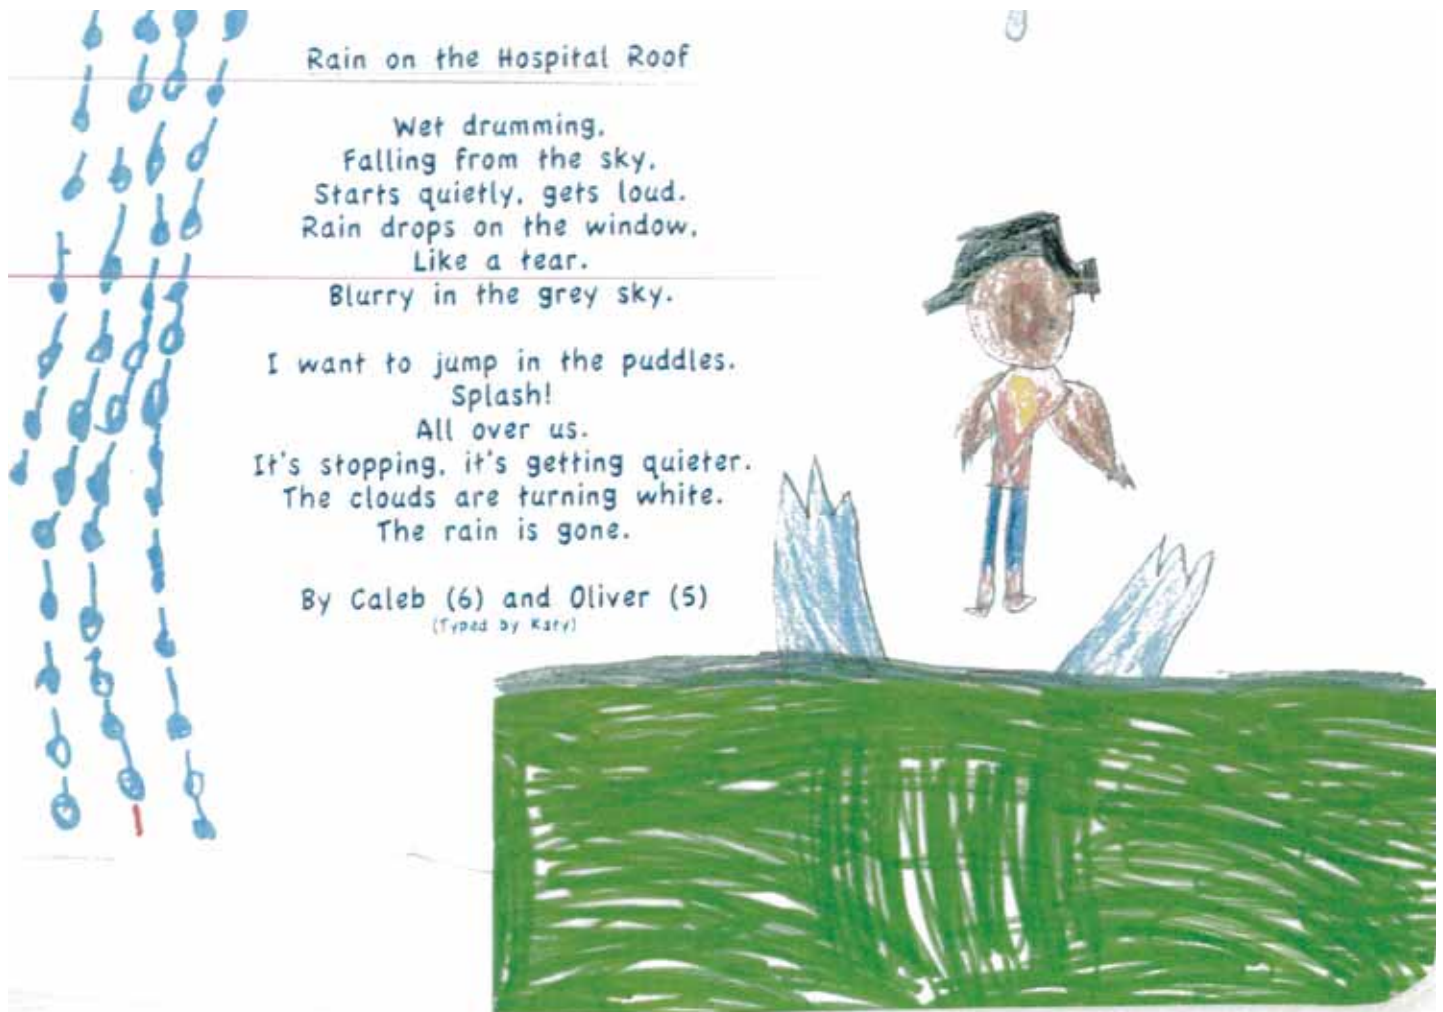 Rain on the Hospital Roof
Wet drumming,
Falling from the sky,
Starts quietly, gets loud.
Rain drops on the window,
Like a tear.
Blurry in the grey sky.
I want to jump in the puddles.
Splash!
All over us.
It's stopping, it's getting quieter.
The clouds are turning white.
The rain is gone.
By Caleb (6) and Oliver (5)
(Typed by Katy)